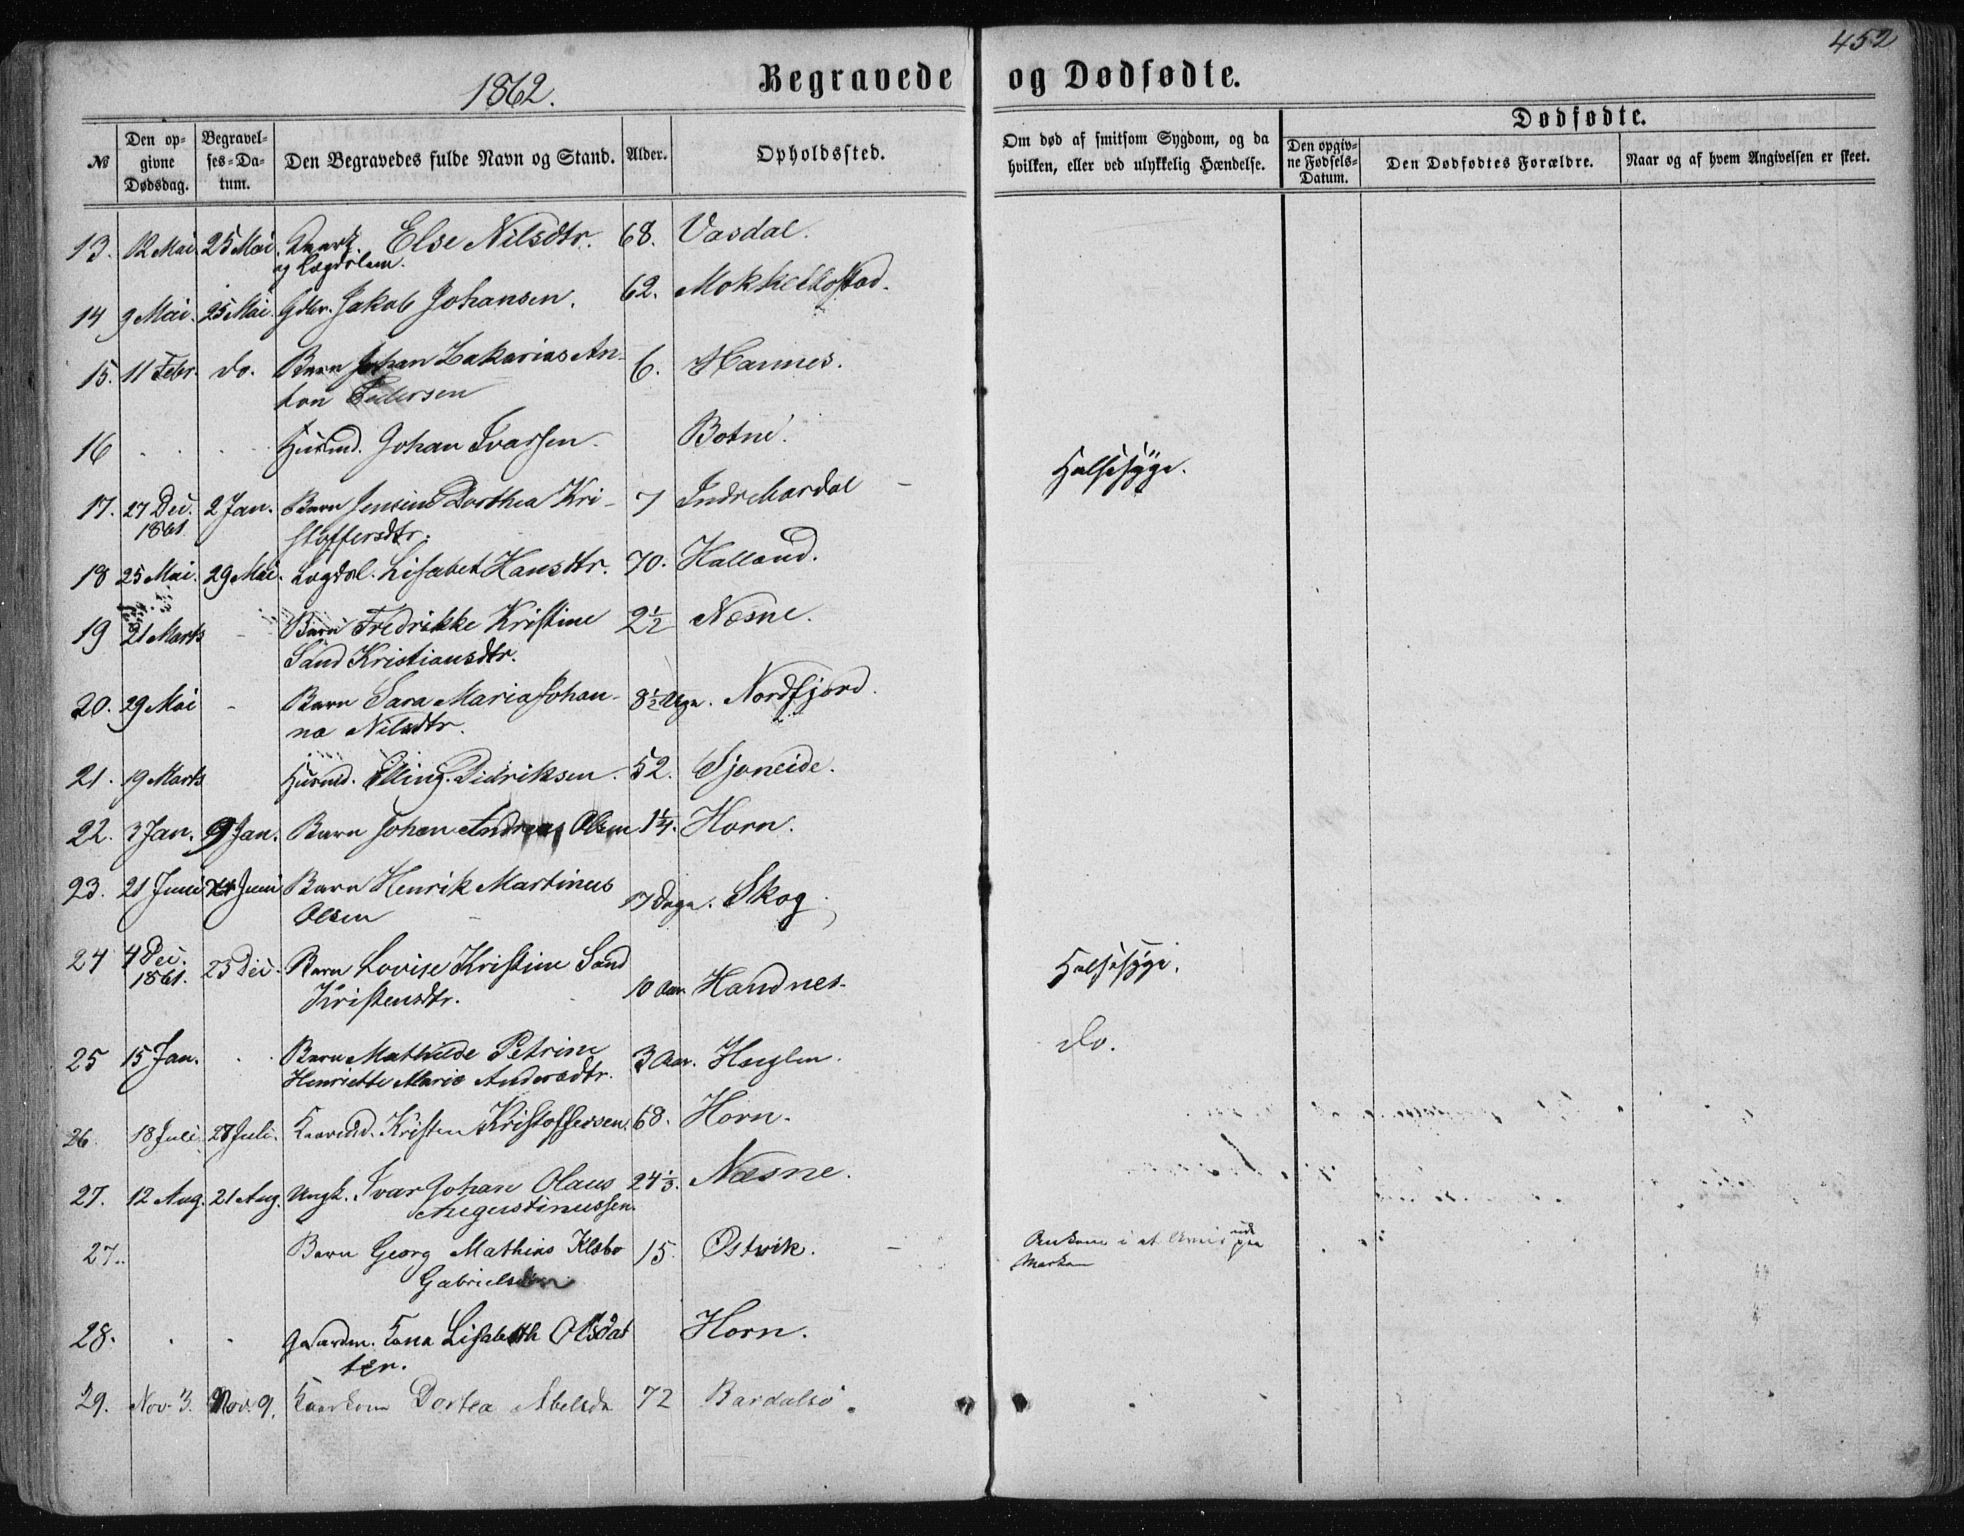 452
1862.
Begravede og Dødfødte.
№
Den opgivne Dødsdag.
Begravelses-Datum.
Den Begravedes fulde Navn og Stand.
Alder.
Opholdssted.
Om død af smitsom Sygdom, og da hvilken, eller ved ulykkelig Hændelse.
Dødfødte.
Den opgivne Fødsels-Datum.
Den Dødfødtes Forældre.
Naar og af hvem Angivelsen er skeet.
13. 12 Mai. 25 Mai. Else Nilsdtr. 68. Vasdal.
og Lægdslem.
14 9 Mai. 25 Mai. Gdbr. Jakob Johansen. 62.
15. 11 Febr. do. Barn Johan Zakarias An- 6. Hannes.
ton Pedersen
16 Huusmd. Johan Ivarsen. Botne.
17. 27 Dec. 2 Jan. Barn Jensine Dorthea Kri- 7 Indre Bardal Halsesyge.
1861. stoffersdtr.
18 25 Mai. 29 Mai. Lægdsl. Lisabet Hansdtr. 70. Halland.
19 21 Marts Barn Fredrikke Kristine 2½ Næsne.
Sand Kristiansdtr.
20. 29 Mai Barn Sara Maria Johan- 8½ Uge. Nordfjord.
na Nilsdtr.
21. 19 Marts Huusmd. Elling Didriksen. 52. Sjoneide.
22. 3 Jan. 9 Jan. Barn Johan Andreas Olsen 1¼. Horn.
23. 21 Juni 24 Juni Barn Henrik Martinus 17 Dage. Skog.
Olsen
24 4 Dec. 23 Dec. Barn Lovise Kristine Sand 10 Aar. Handnes. Halsesyge.
1861. Kristensdtr.
25 15 Jan. Barn Mathilde Petrine 3 Aar. Huglen. do.
Henriette Marie Andersdtr.
26. 18 Juli. 28 Juli. Kristen Kristoffersen. 68. Horn.
27. 12 Aug. 21 Aug. Ungk. Ivar Johan Olaus 24⅓. Næsne.
Augustinussen.
27. Barn Georg Mathias Klæbo 15. Østvik. i et ude paa
Gabrielsen Marken
28. Gaardm. Kona Lisabeth Olsdat Horn.
ter.
29. Nov. 3. Nov. 9. Kaarkone Dortea Abelsda 72 Bardalsø.